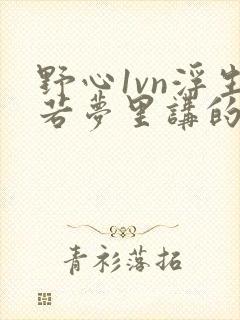 野心1vn浮生
若夢里講的
青衫落拓